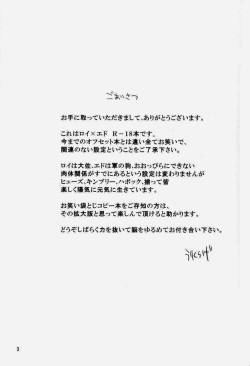 ごあいさつ
お手に取っていただきまして、ありがとうございます。
これはロイ×エド R－18本です。
今までのオフセット本とは違い全てお笑いで、
関連のない設定ということをご了承下さい。
ロイは大佐、エドは軍の狗、おおっぴらにできない
肉体関係がすでにあるという設定は変わりませんが
ヒューズ、キンブリー、ハボック、揃って皆
楽しく陽気に元気に生きています。
お笑い袋とじコピー本をご存知の方は、
その拡大版と思って楽しんで頂けると助かります。
どうぞしばらく力を抜いて脳をゆるめてお付き合い下さい。
3